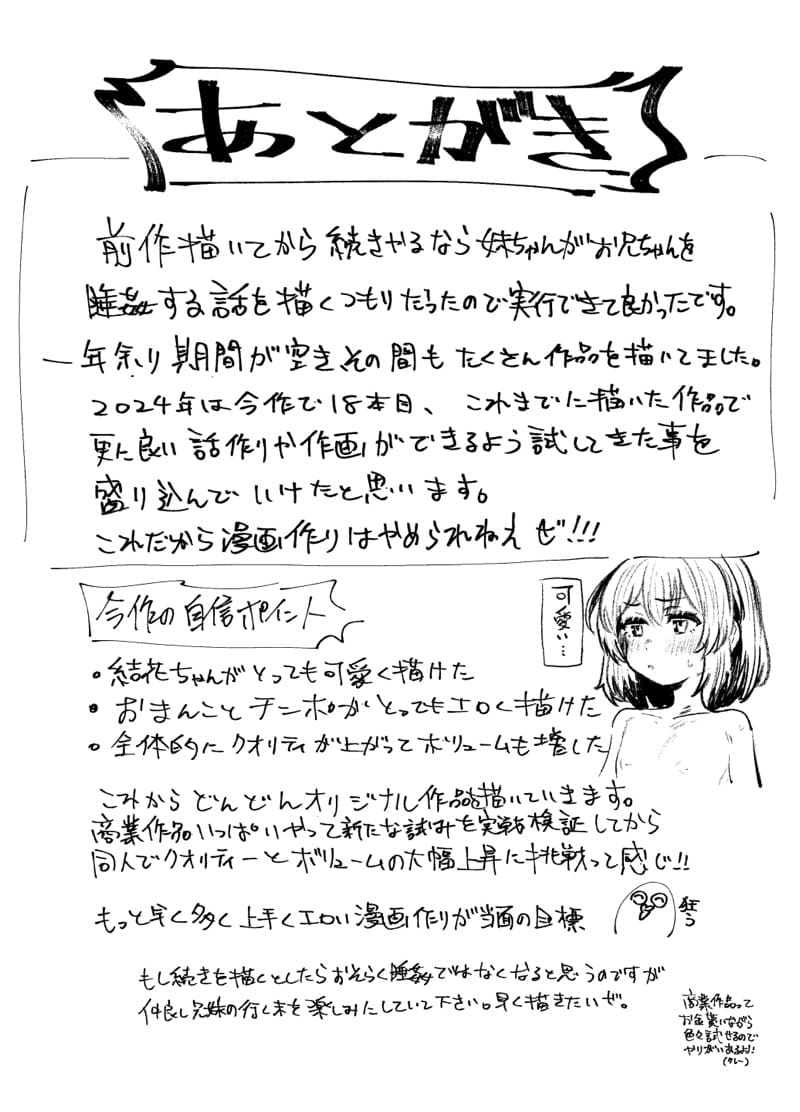 あとがき
前作描いてから続きやるなら妹ちゃんがお兄ちゃんを
睡姦する話を描くつもりだったので実行できて良かったです。
一年余り期間が空きその間もたくさん作品を描いてました。
2024年は今作で18本目、これまでに描いた作品で
更に良い話作りや作画ができるよう試してきた事を
盛り込んでいけたと思います。
これだから漫画作りはやめられねえぜ!!!
今作の自信ポイント
可愛い…
・結花ちゃんがとっても可愛く描けた
・おまんことチンポがとってもエロく描けた
・全体的にクオリティが上がってボリュームも増した
これからどんどんオリジナル作品を描いていきます。
商業作品いっぱいやって新たな試みを実戦検証してから
同人でクオリティーとボリュームの大幅上昇に挑戦って感じ!!
もっと早く多く上手くエロい漫画作りが当面の目標
狂う
もし続きを描くとしたらおそらく睡姦ではなくなると思うのですが
仲良し兄妹の行く末を楽しみにしていて下さい。早く描きたいぜ。
商業作品って
お金貰いながら
色々試せるので
やりがいあるよ!!